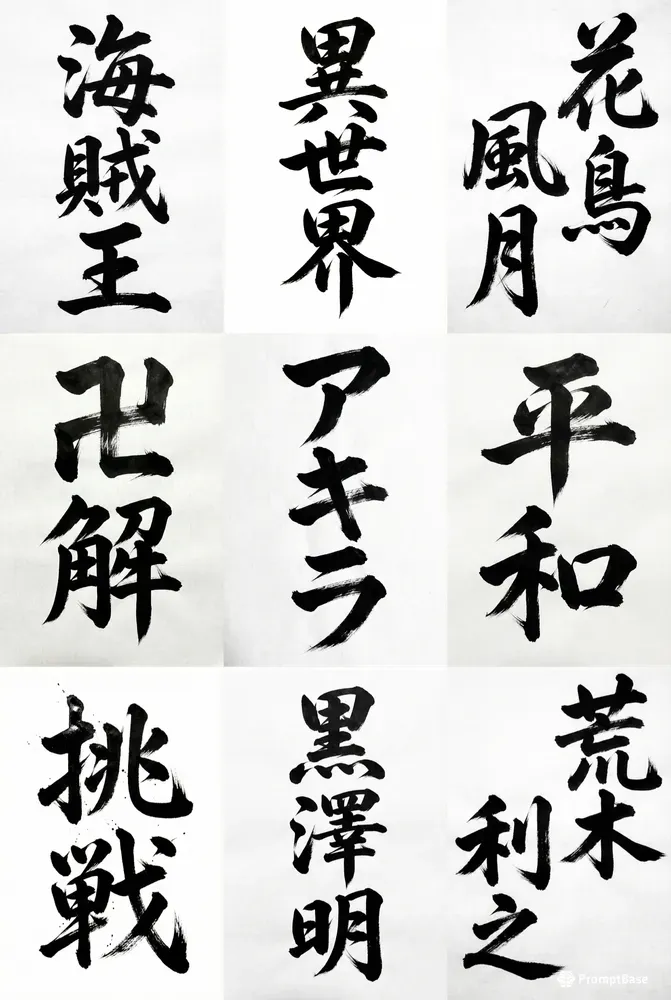 海賊王
異世界
花鳥
風月
卍解
アキラ
平和
挑戦
黒澤明
荒木
利之
PromptBase